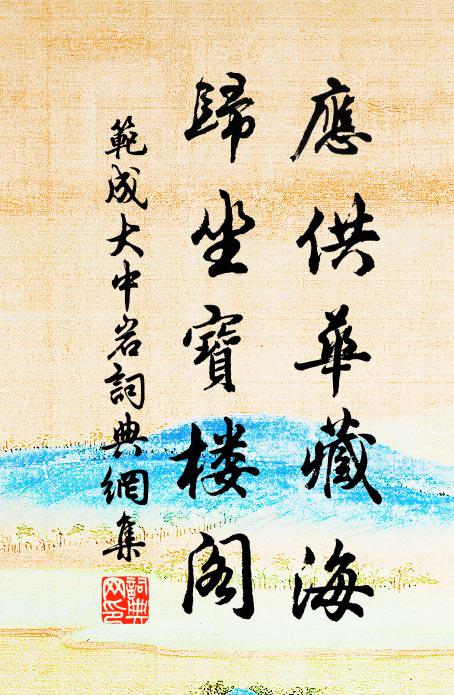 應供華藏海
歸坐寶楼阁
範成大中岩詞典網集
詞典